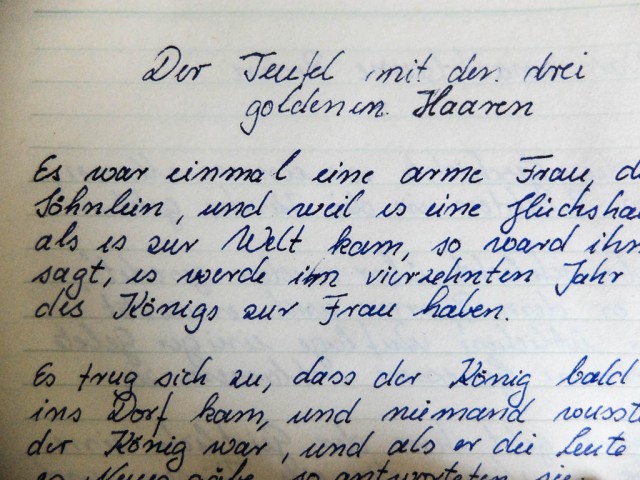 Der Teufel mit den drei
goldenen Haaren
Es war einmal eine arme Frau, d
Söhnlein, und weil es eine Glücksha
als es zur Welt kam, so ward ihm
sagt, es werde im vierzehnten Jahr
des Königs zur Frau haben.
Es trug sich zu, dass der König bald
ins Dorf kam, und niemand wusst
der König war, und als er die Leute
es Neues gäbe, so antworteten sie